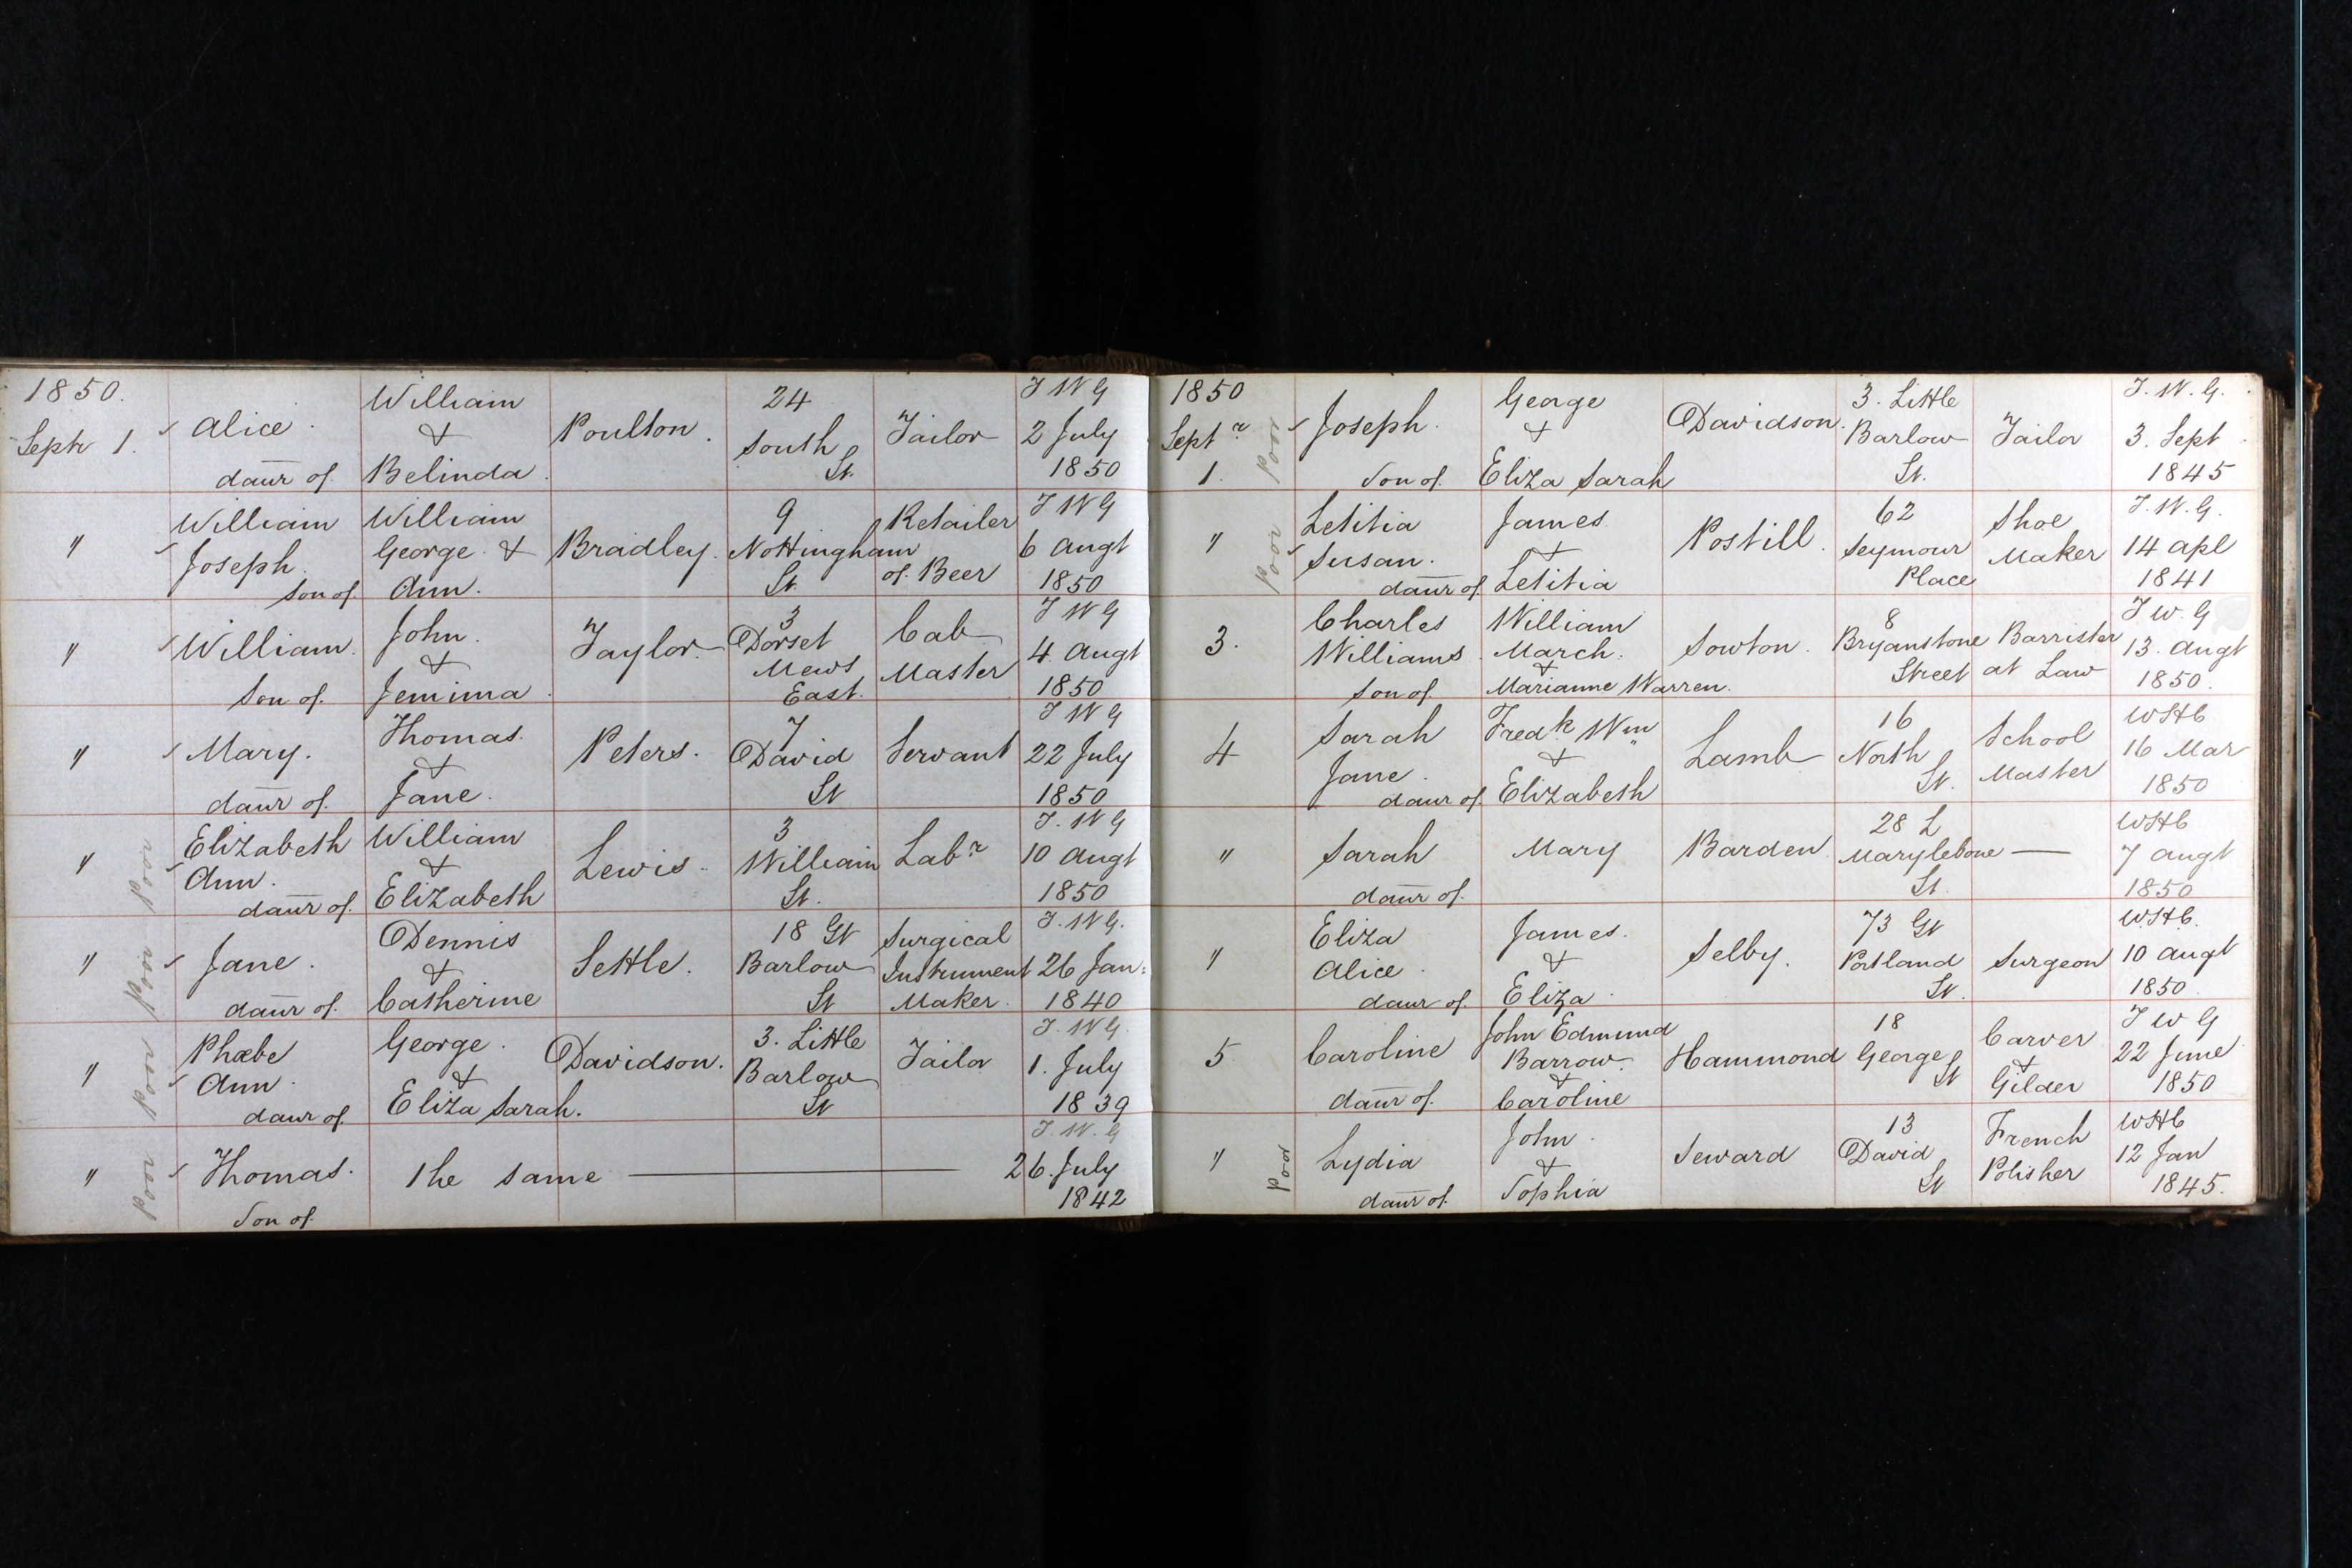 1850.
Sept 1.
Alice.
daur of.
William
&
Belinda.
Poulton.
24
South
St.
Tailor
J W G
2 July
1850
"
William
Joseph.
Son of
William
George &
Ann.
Bradley.
9
Nottingham
St.
Retailer
of. Beer
J W G
6 Augt
1850
"
William.
Son of.
John.
&
Jemima.
Taylor.
3
Dorset
Mews
East.
Cab
Master
J W G
4. Augt
1850
"
Mary.
daur of.
Thomas.
&
Jane.
Peters.
7
David
St
Servant
J W G
22 July
1850
"
Poor
Elizabeth
Ann.
daur of.
William
&
Elizabeth
Lewis.
3
William
St.
Labr
J. W G
10 Augt
1850
"
Poor
Jane.
daur of.
Dennis
&
Catherine
Settle.
18 Gt
Barlow
St
Surgical
Instrument
Maker.
J. W G.
26 Jan:
1840
"
Poor
Phœbe
Ann.
daur of.
George.
&
Eliza Sarah.
Davidson.
3. Little
Barlow
St
Tailor
J. W G.
1. July
1839
"
Poor
Thomas.
Son of.
The same
J. W. G
26. July
1842
1850
Septr
1.
Poor
Joseph.
Son of.
George
&
Eliza Sarah
Davidson.
3. Little
Barlow
St.
Tailor
J. W. G.
3. Sept
1845
"
Poor
Letitia
Susan.
daur of.
James.
&
Letitia
Postill.
62
Seymour
Place
Shoe
Maker
J. W. G.
14 Apl
1841
3.
Charles
Williams
Son of.
William
March.
&
Marianne Warren.
Sowton.
8
Bryanstone
Street
Barrister
at Law
J W. G
13. Augt
1850.
4
Sarah
Jane.
daur of.
Fredk Wm
&
Elizabeth
Lamb
16
North
St.
School
Master
WHC
16 Mar
1850
"
Sarah
daur of.
Mary
Barden.
28 L
Marylebone
St.
WHC
7 Augt
1850
"
Eliza
Alice.
daur of.
James.
&
Eliza.
Selby.
73 Gt
Portland
St.
Surgeon
WHC.
10 Augt
1850.
5
Caroline
daur of.
John Edmund
Barrow.
&
Caroline
Hammond
18
George
St
Carver
&
Gilder
J W G
22 June
1850
"
Poor
Lydia
daur of.
John.
&
Sophia
Seward
13
David
St
French
Polisher
WHC
12 Jan
1845.